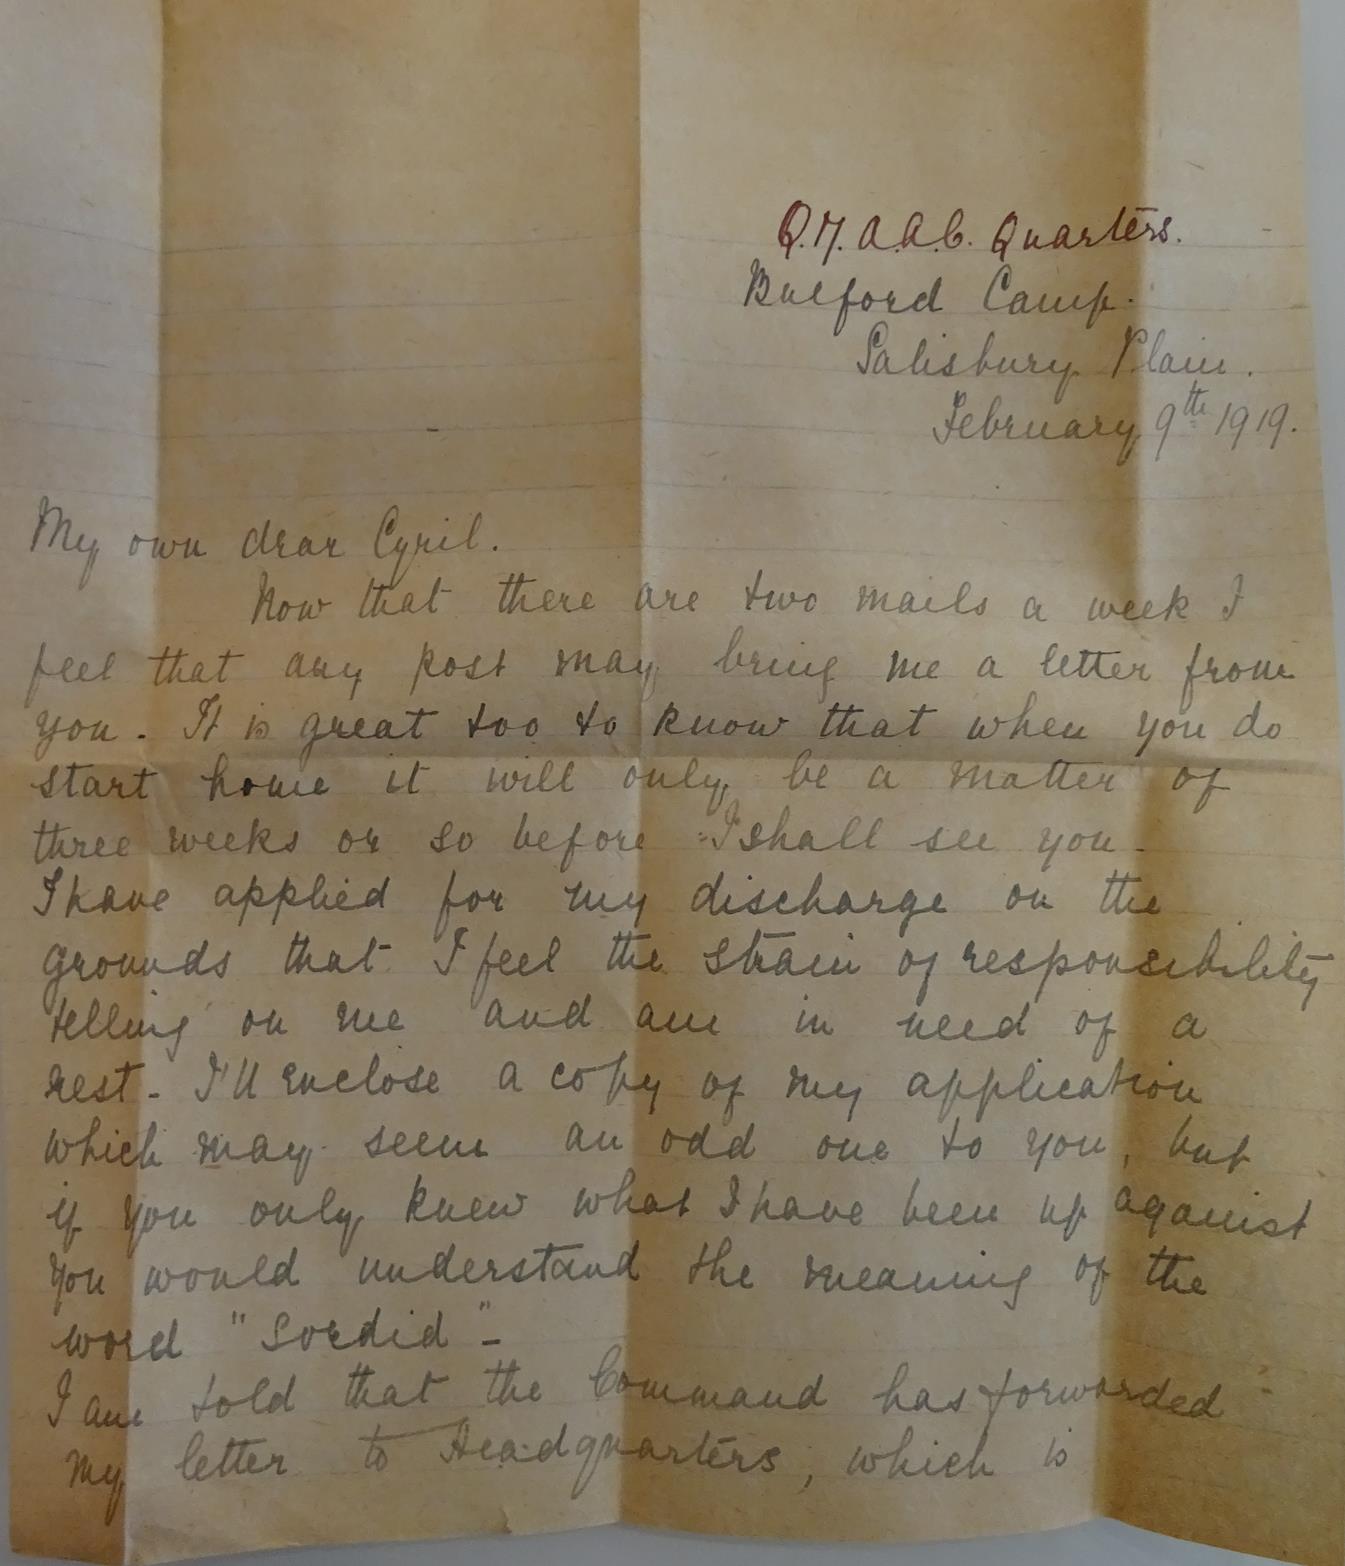 Q.M.A.A.C. Quarters.
Bulford Camp.
Salisbury Plain.
February 9th 1919.
My own dear Cyril.
Now that there are two mails a week I
feel that any post may bring me a letter from
you. It is great too to know that when you do
start home it will only be a matter of
three weeks or so before I shall see you.
I have applied for my discharge on the
grounds that I feel the strain of responsibility
telling on me and am in need of a
rest. I'll enclose a copy of my application
which may seem an odd one to you, but
if you only knew what I have been up against
you would understand the meaning of the
word "Sordid" -
I am told that the Command has forwarded
my letter to Headquarters, which is